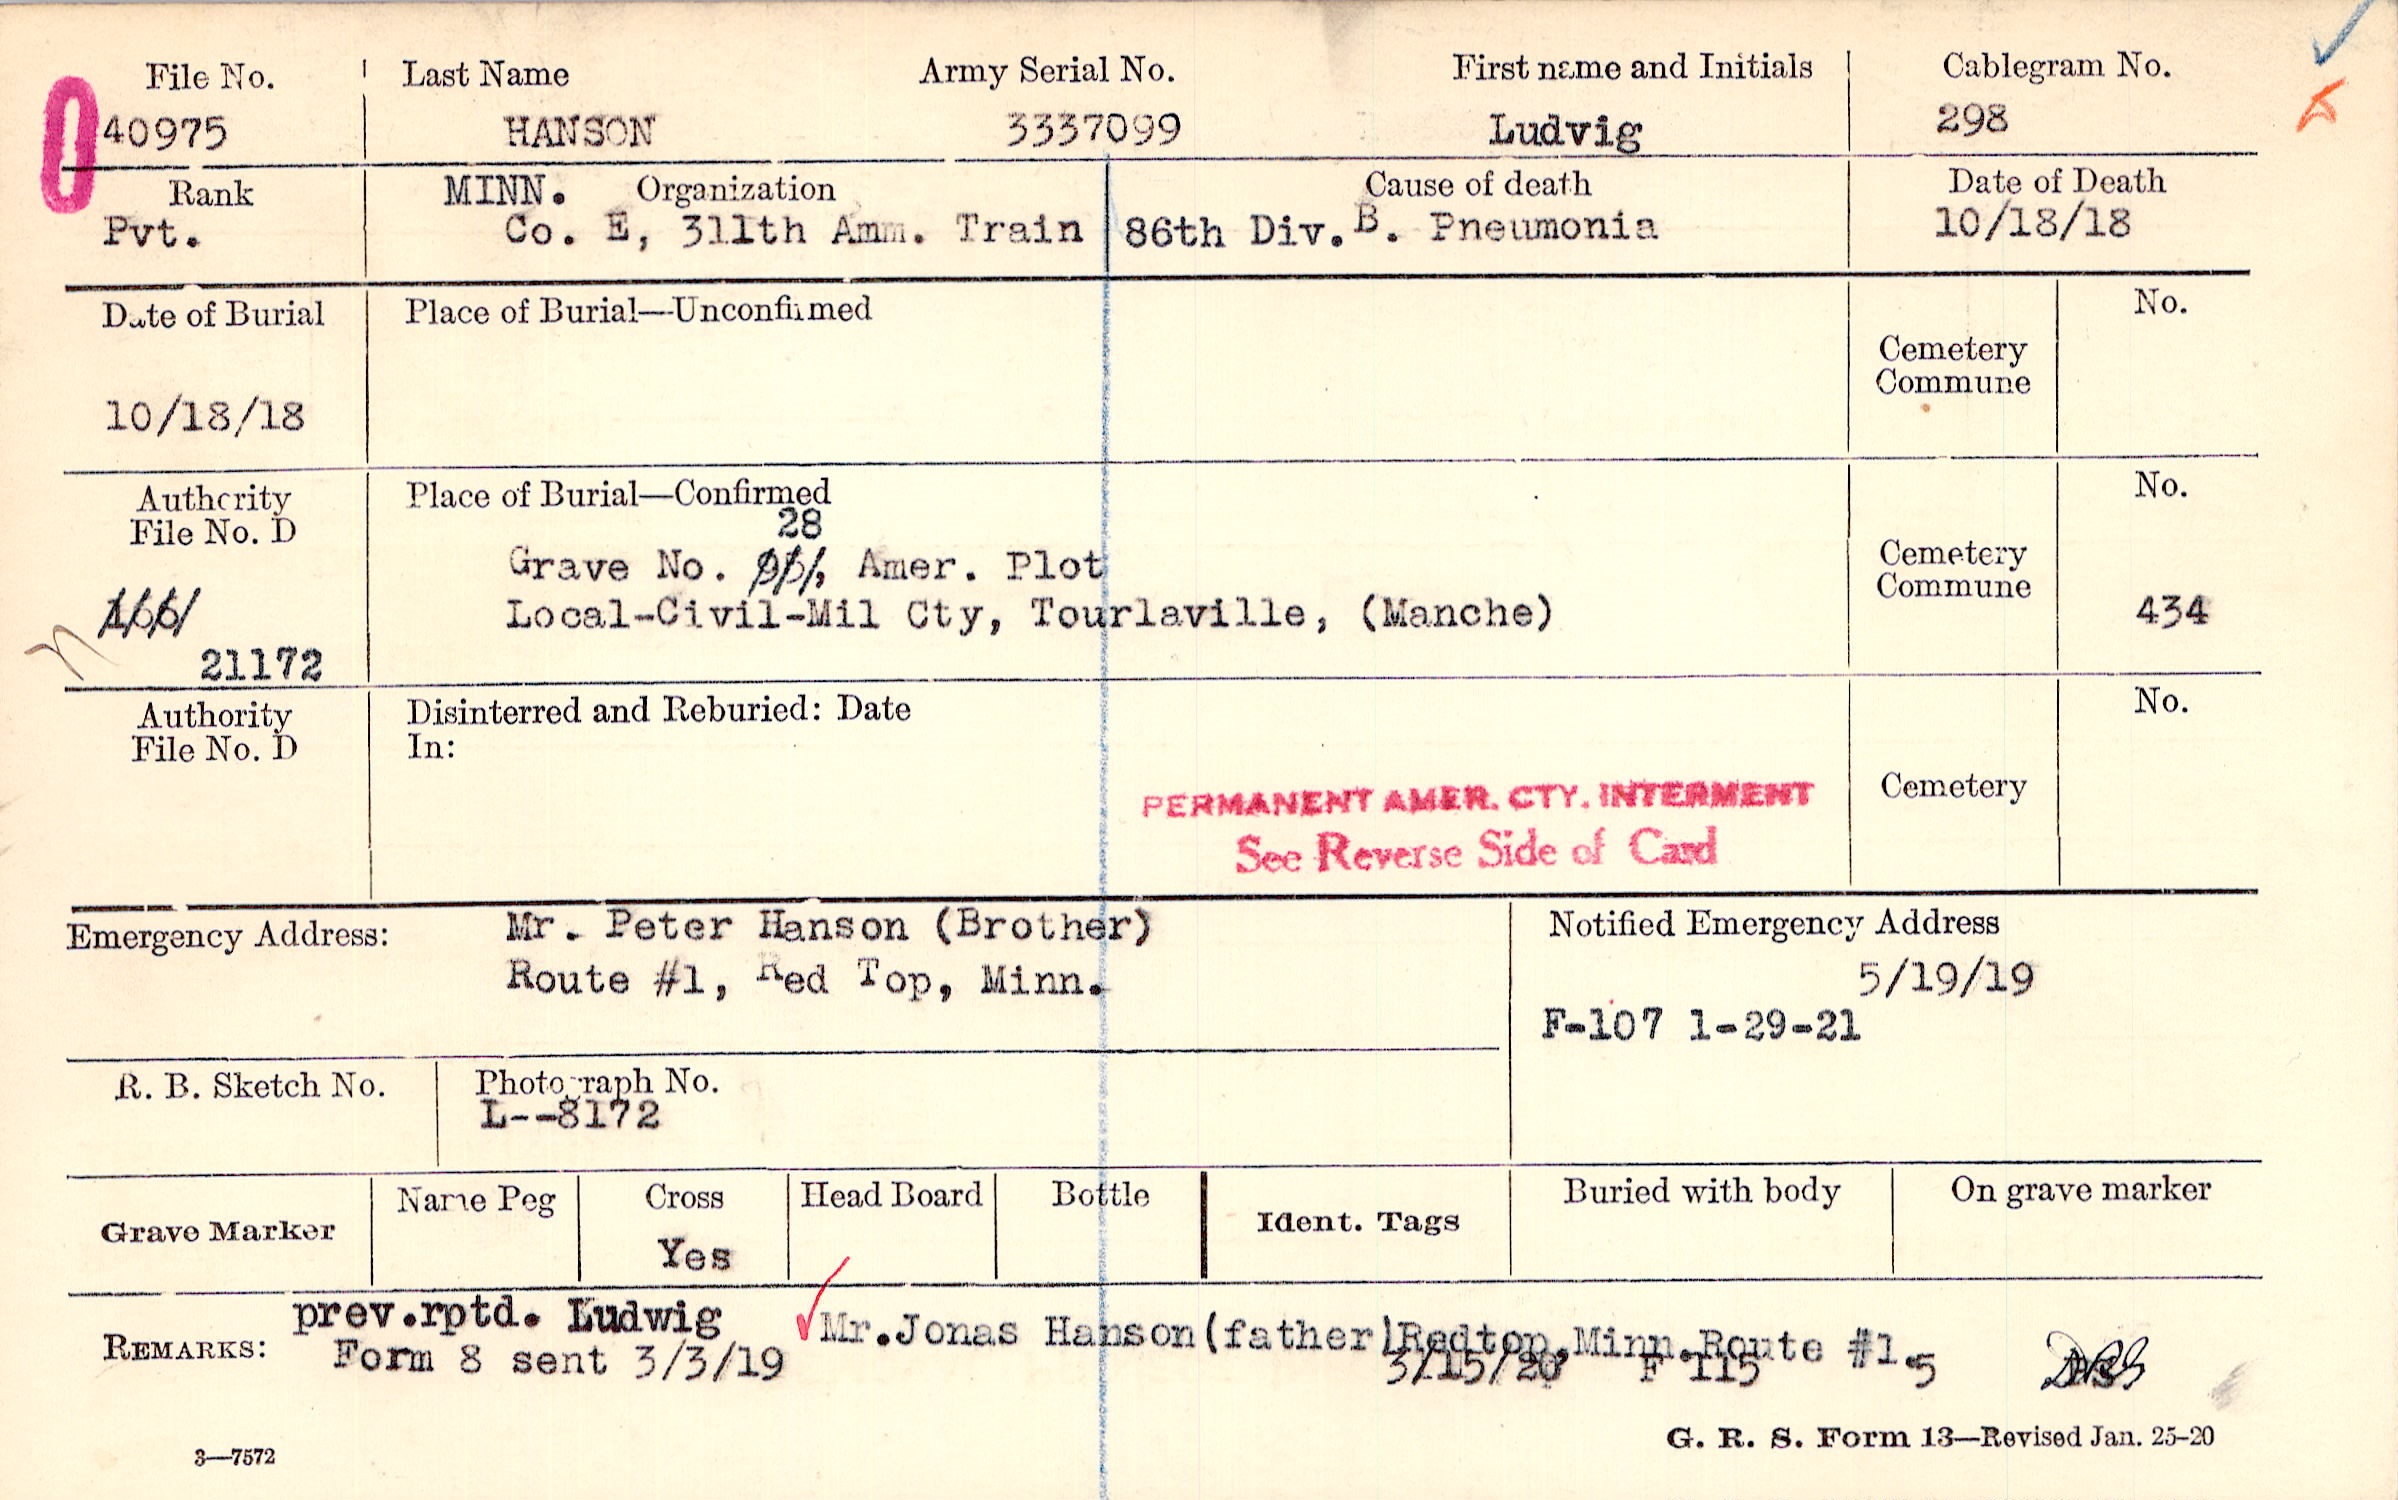 File No. Last Name Army Serial No. First name and Initials Cablegram No.
40975 HANSON 3337099 Ludvig 298
Rank MINN. Organization Cause of death Date of Death
Pvt. Co. E, 311th Amm. Train 86th Div. B. Pneumonia 10/18/18
Date of Burial Place of Burial—Unconfirmed No.
Cemetery
Commune
10/18/18
Authority Place of Burial—Confirmed No.
File No. D 28
Grave No. Amer. Plot Cemetery
Commune
Local-Civil-Mil Cty, Tourlaville, (Manche) 434
21172
Authority Disinterred and Reburied: Date No.
File No. D In:
Cemetery
PERMANENT AMER. CTY. INTERMENT
See Reverse Side of Card
Emergency Address: Mr. Peter Hanson (Brother) Notified Emergency Address
Route #1, Red Top, Minn. 5/19/19
F-107 1-29-21
R. B. Sketch No. Photograph No.
L--8172
Grave Marker Name Peg Cross Head Board Bottle Ident. Tags Buried with body On grave marker
Yes
REMARKS: prev.rptd. Ludwig Mr.Jonas Hanson(father)Redtop,Minn.Route #1.
Form 8 sent 3/3/19 3/15/20 F 115 5
3—7572 G. R. S. Form 13—Revised Jan. 25-20